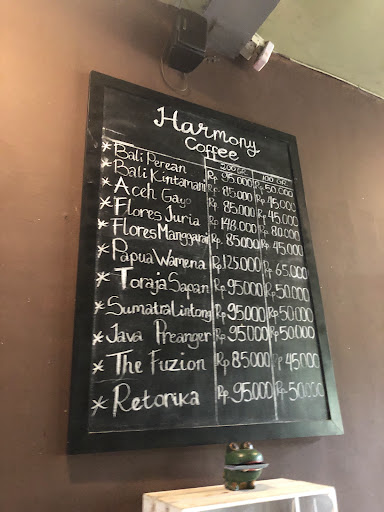 Harmony
Coffee
200 GR 100 GR
* Bali Perean Rp 95.000 Rp 50.000
Bali Kintamani Rp 85.000 Rp 45.000
* Aceh Gayo Rp 85.000 Rp 45.000
* Flores Juria Rp 148.000 Rp 80.000
* Flores Manggarai Rp 85.000 Rp 45.000
* Papua Wamena Rp 125.000 Rp 65.000
* Toraja Sapan Rp 95.000 Rp 50.000
* Sumatra Lintong Rp 95.000 Rp 50.000
* Java Preanger Rp 95.000 Rp 50.000
* The Fuzion Rp 85.000 Rp 45.000
* Retorika Rp 95.000 Rp 50.000